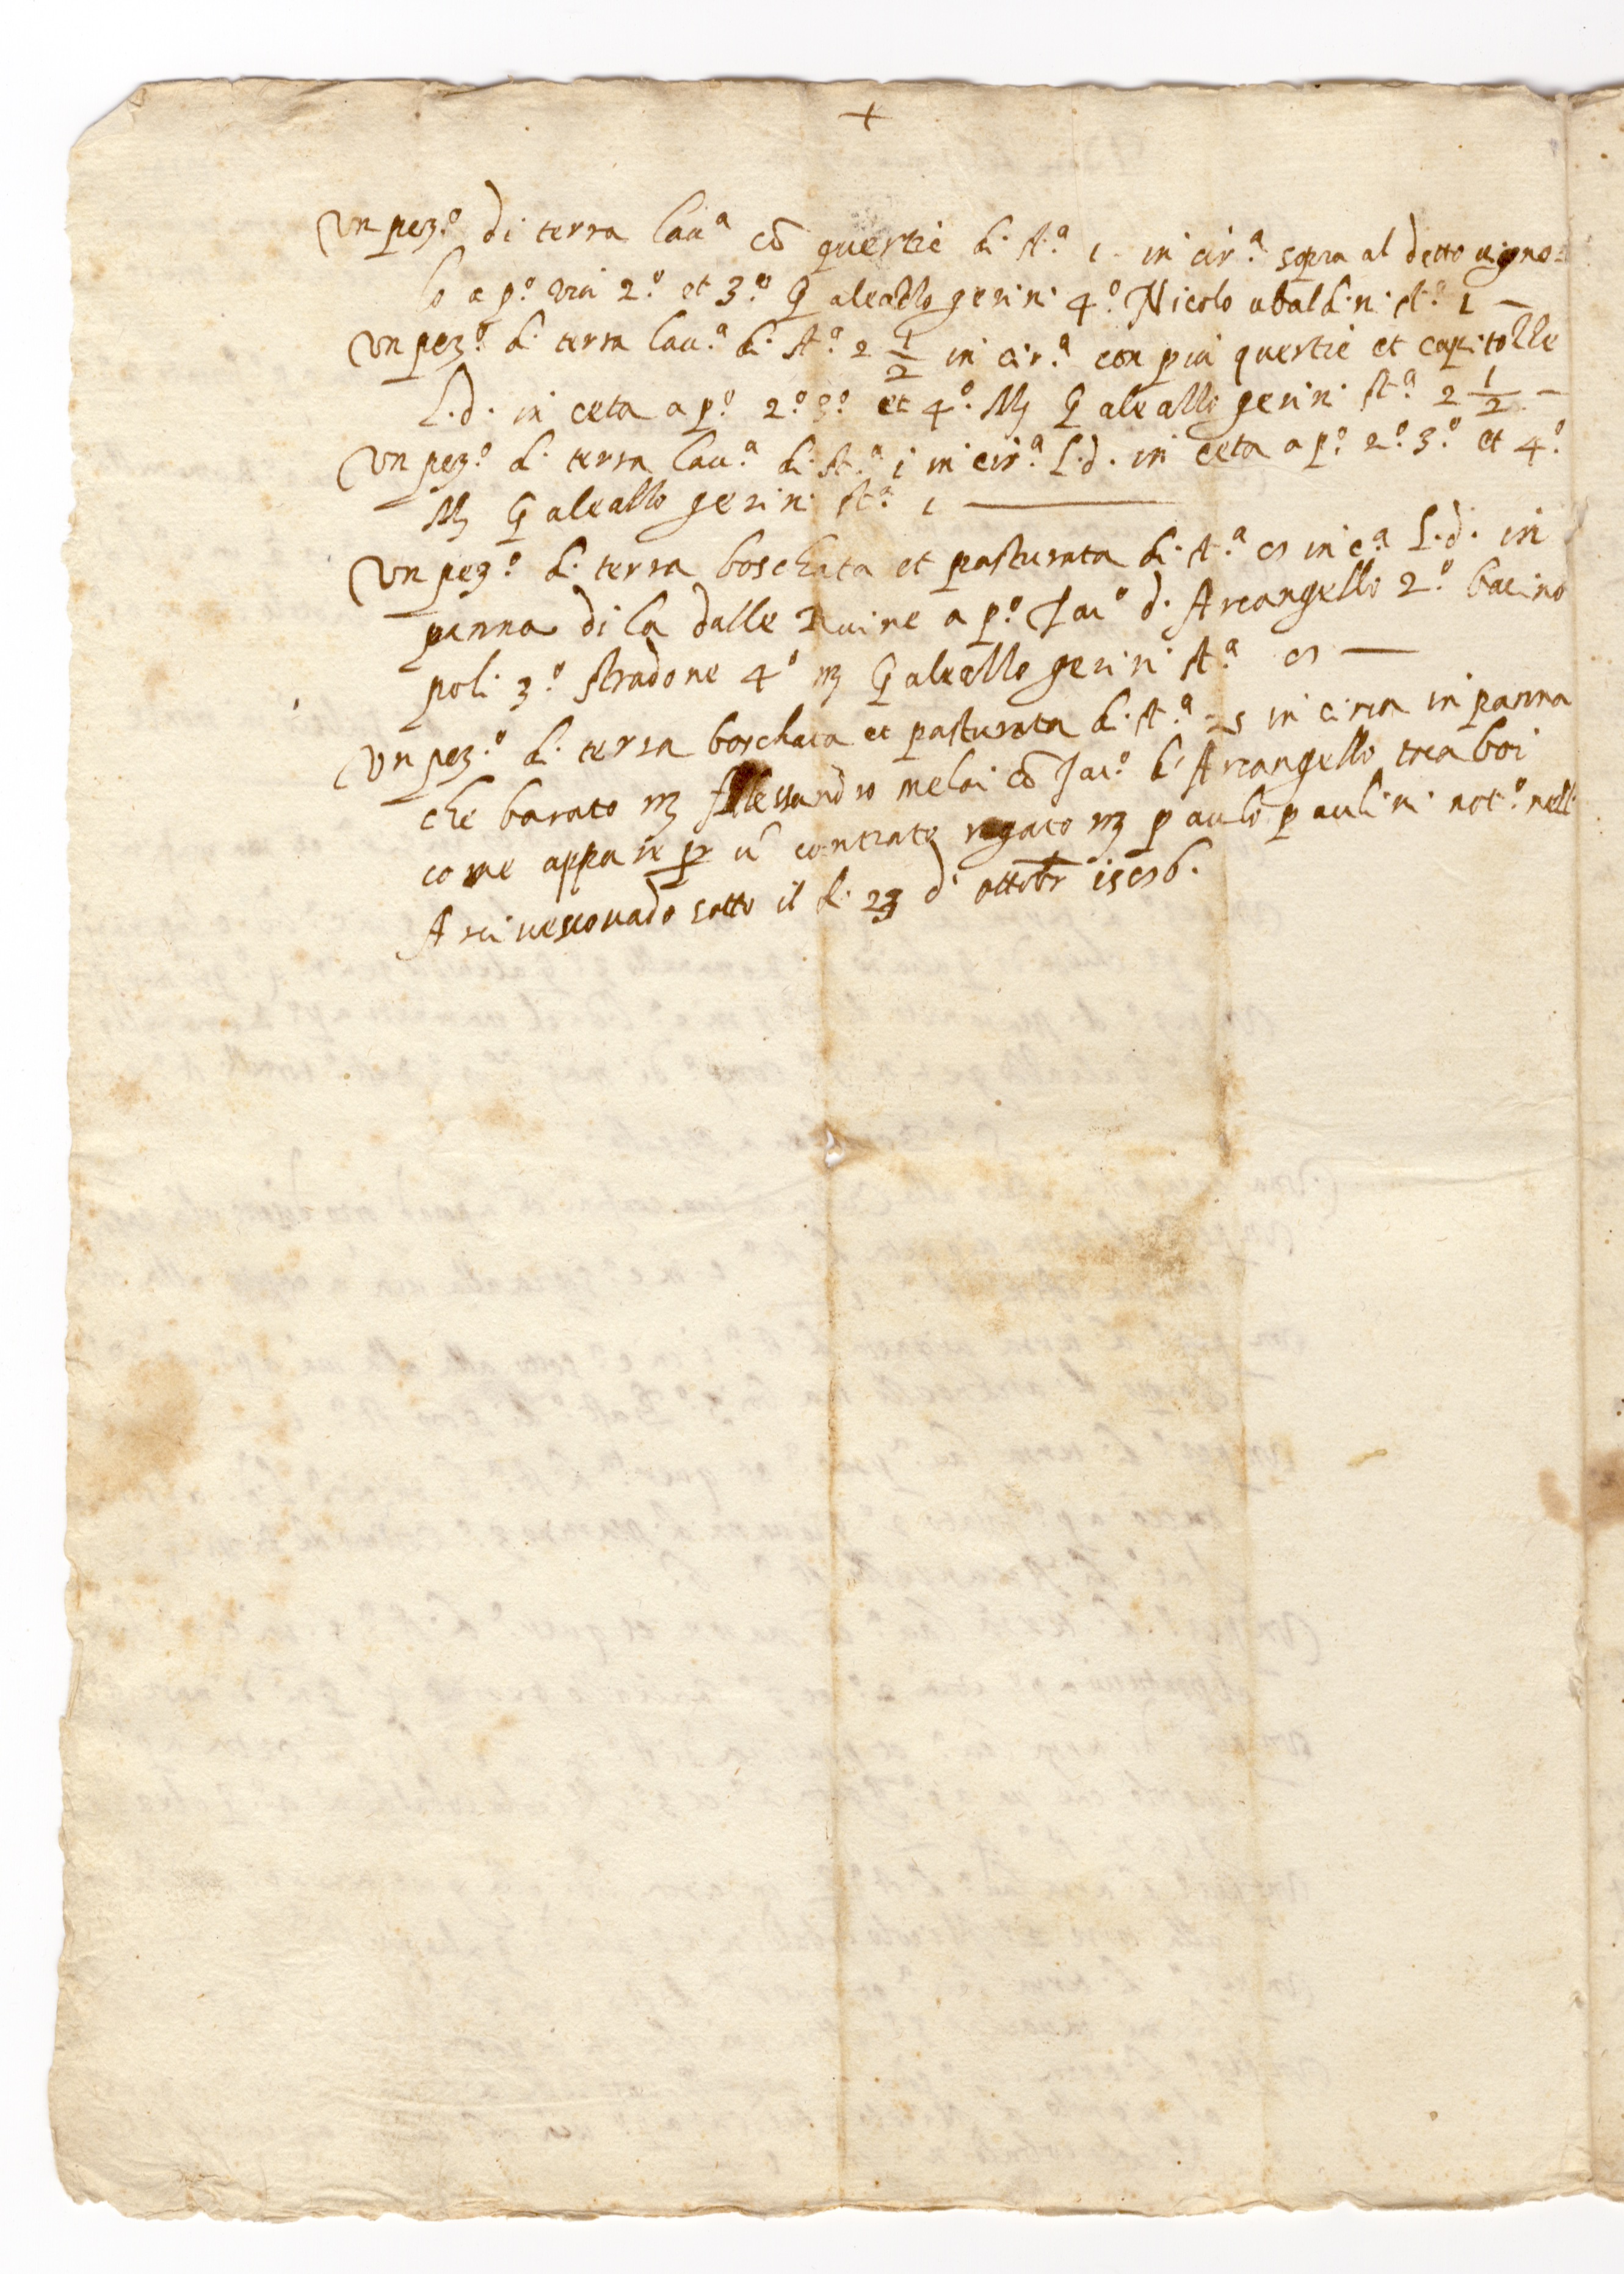 +
Un pez.º di terra lau.ª cō quercie di st.ª 1 - in cir.ª sopra al detto vigno=
lo a p.º via 2.º et 3.º Galeallo gerini 4.º Nicolo ubaldini st.ª 1 —
Un pez.º di terra lau.ª di st.ª 2 1/2 in cir.ª con piu quercie et capitolle
l.d. in ceta a p.º 2.º 3.º et 4.º M Galeallo gerini st.ª 2 1/2 —
Un pez.º di terra lau.ª di st.ª i in cir.ª l.d. in ceta a p.º 2.º 3.º et 4.º
M Galeallo gerini st.ª 1 —
Un pez.º di terra boschata et pasturata di st.ª in c.ª l.d. in
panna di la dalle Ruine a p.º Jac.º d. Arcangello 2.º bacino
poli 3.º stradone 4.º M Galeallo gerini st.ª —
Un pez.º di terra boschata et pasturata di st.ª in circa in panna
che barato M Alessandro meloi cō Jac.º di Arcangello tra boi
come appare per ū contrato rogato M paulo paulini not.º nell
Arcivescovado sotto il di 23 d' ottobr